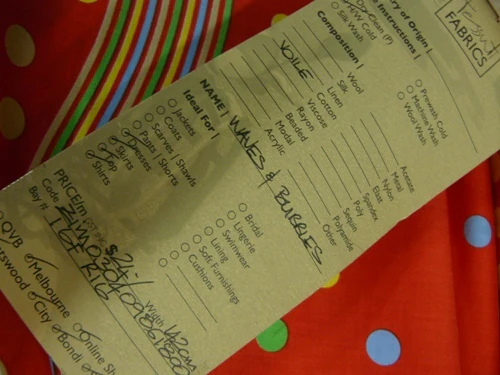 Tessuti
FABRICS
ry of Origin |
e Instructions |
Dry Clean (P)
H/W Cold
Silk Wash
Prewash Cold
Machine Wash
Wool Wash
Composition |
VOILE
Wool
Silk
Linen
Cotton
Viscose
Rayon
Beaded
Modal
Acrylic
Acetate
Metal
Nylon
Elast
Spandex
Poly
Sequin
Polyamide
Other
NAME | WAVES & BUBBLES
Ideal For |
Jackets
Coats
Scarves / Shawls
Pants / Shorts
Dresses
Skirts
Top
Shirts
Bridal
Lingerie
Swimwear
Lining
Soft Furnishings
Cushions
PRICE/m $24-/
Width 142cm
Code
Buy
QVB
Melbourne
Online Sh
tswood
City
Bondi